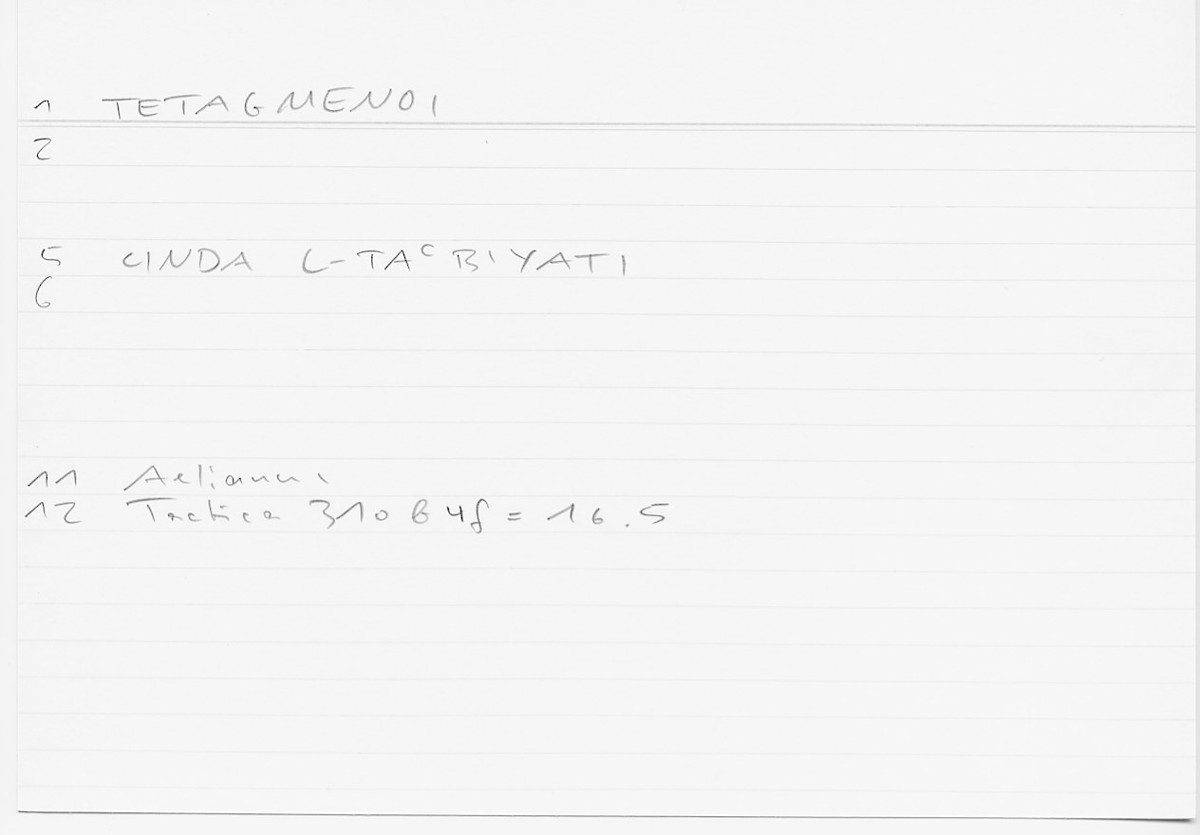 1 TETAGMENOI
2
5 ʿINDA L-TAʿBIYATI
6
11 Aelianus
12 Tactica 310 b 4f = 16.5